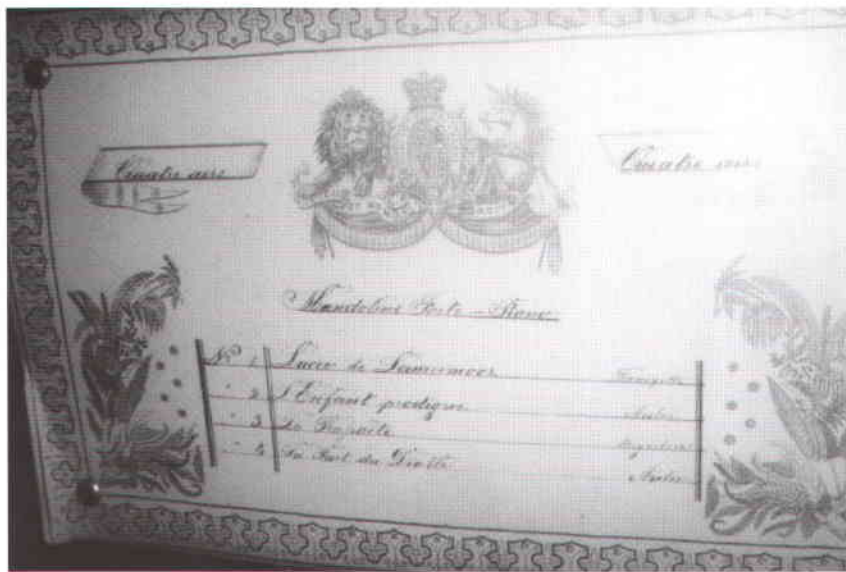 Quatre airs
Quatre airs
Mandoline Forte-Piano
No 1 Lucie de Lamermoor Donizetti
" 2 L'Enfant prodigue Auber
" 3 La
" 4 La Part du Diable Auber